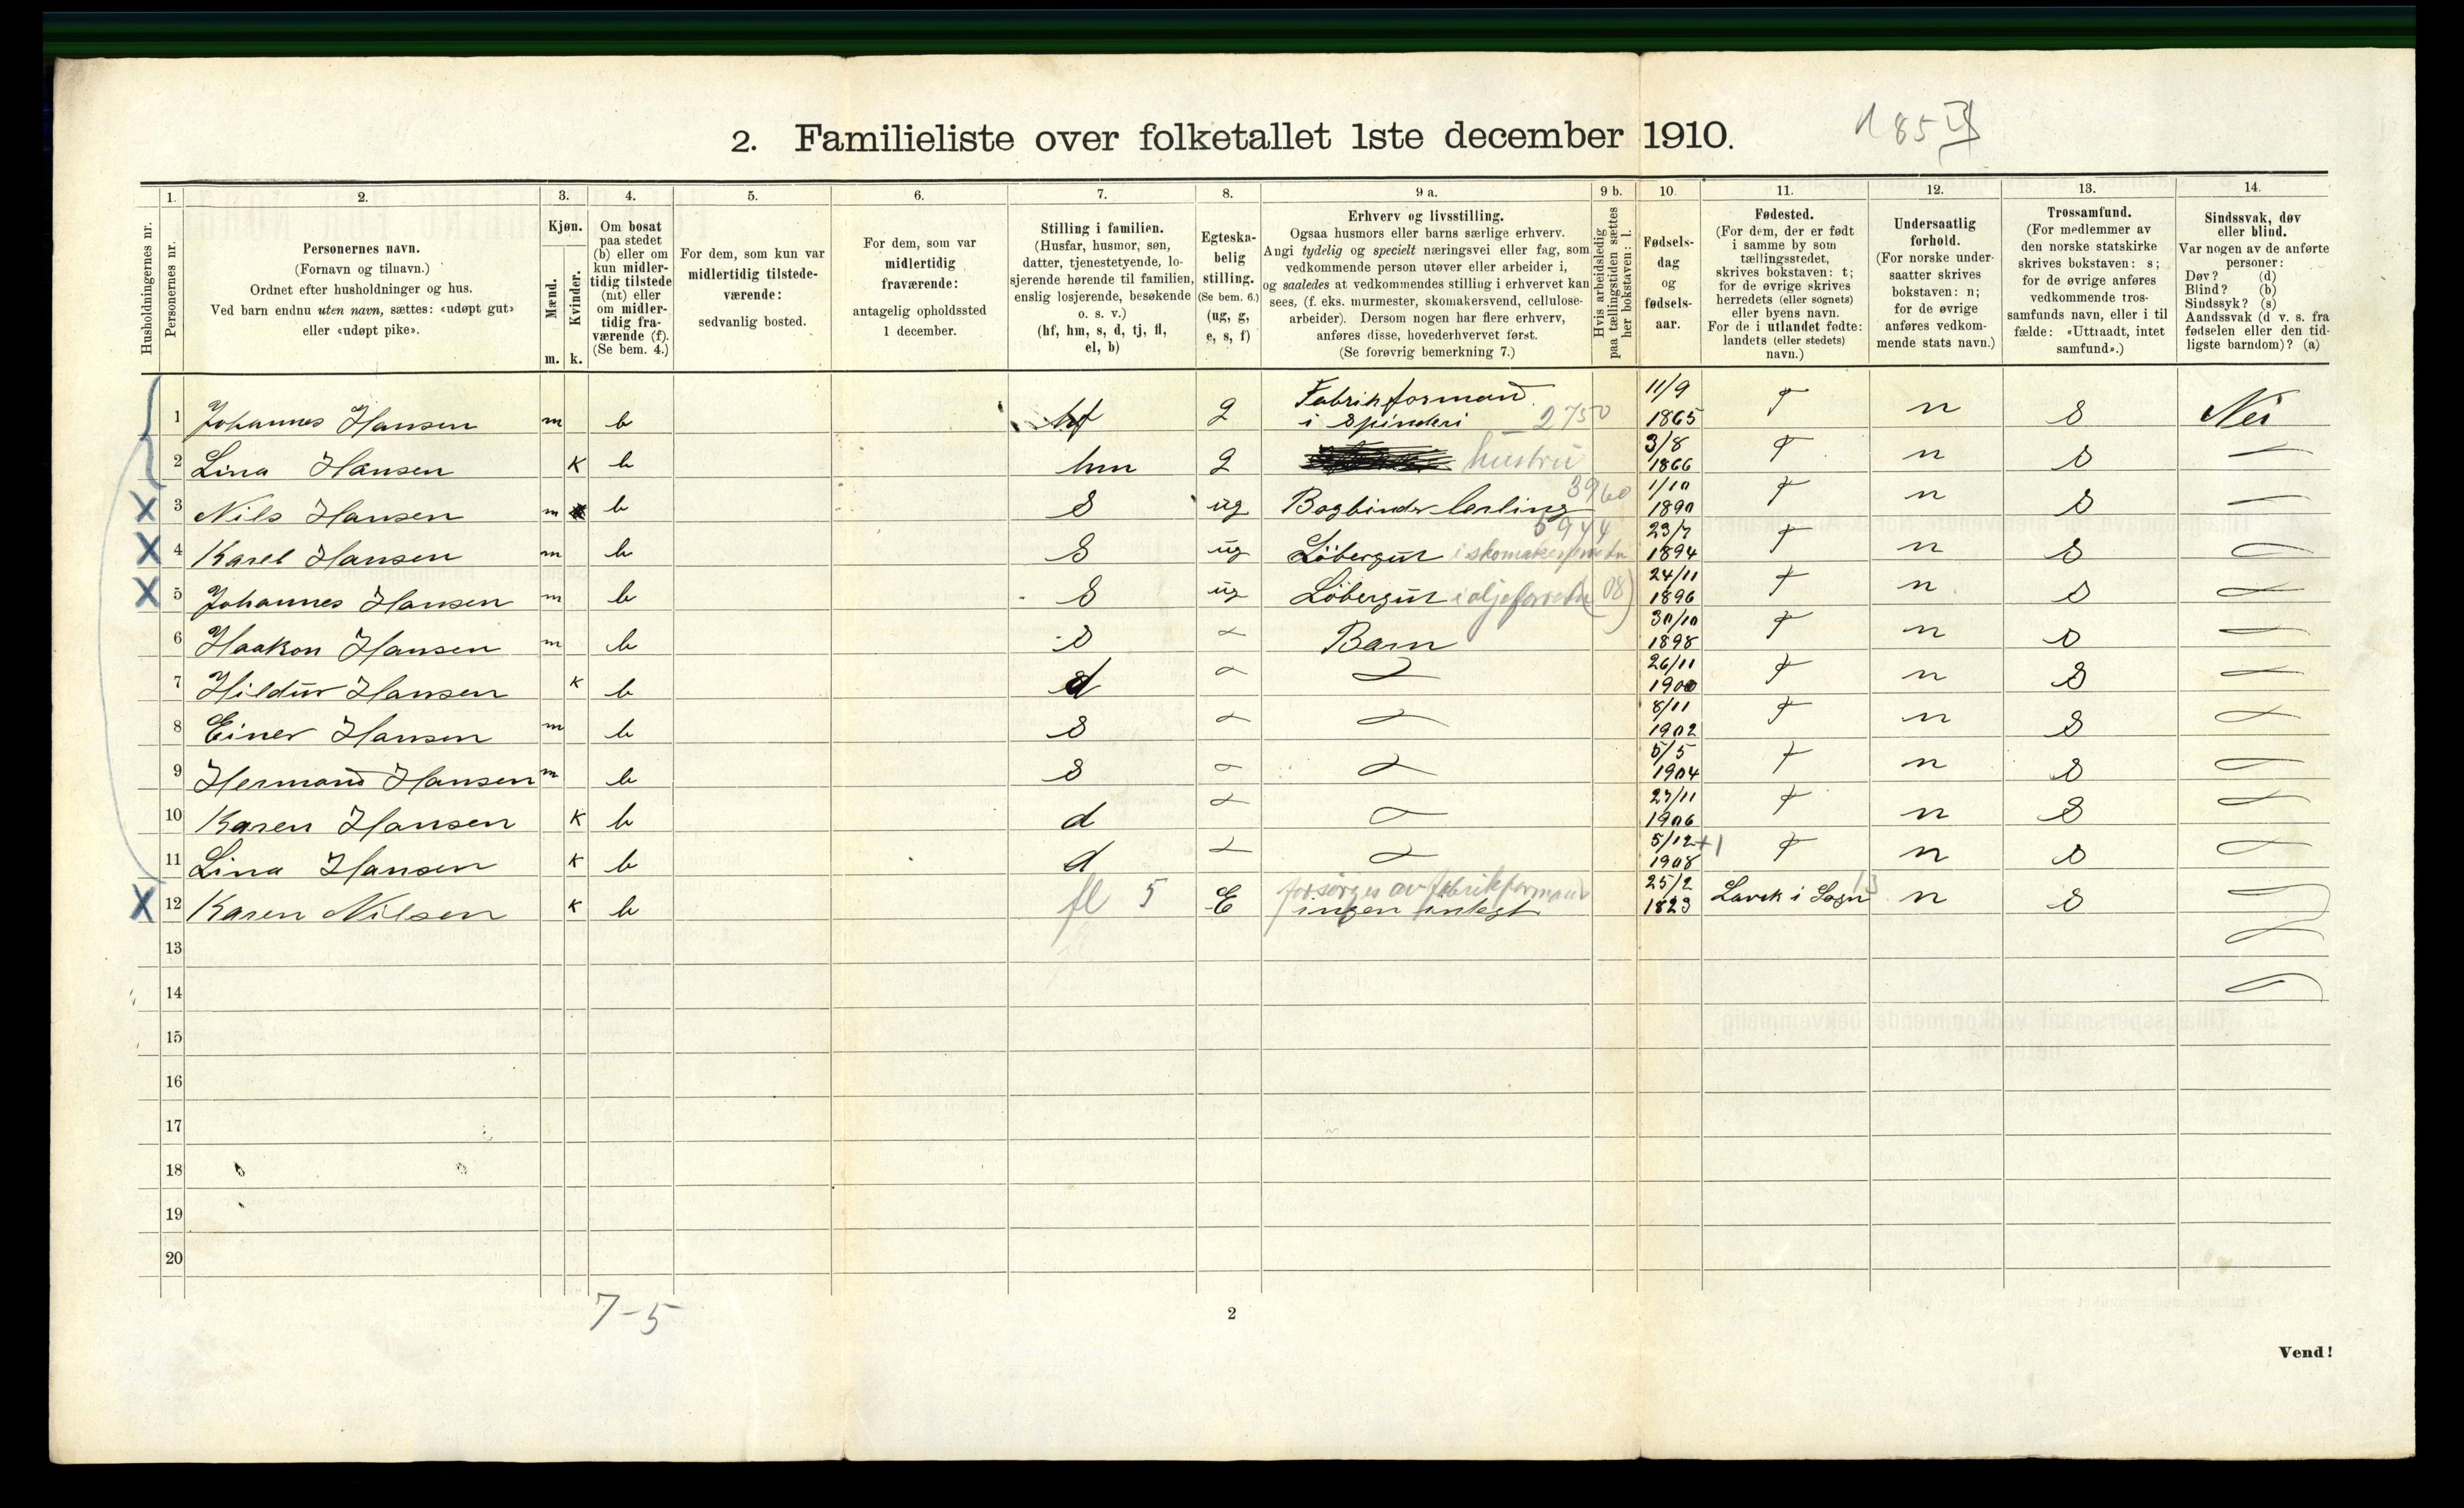 185 II
2. Familieliste over folketallet 1ste december 1910.
1. 2. 3. 4. 5. 6. 7. 8. 9 a. 9 b. 10. 11. 12. 13. 14.
Husholdningernes nr.
Personernes nr.
Personernes navn.
(Fornavn og tilnavn.)
Ordnet efter husholdninger og hus.
Ved barn endnu uten navn, sættes: «udøpt gut»
eller «udøpt pike».
Kjøn.
Mænd.
Kvinder.
m. k.
Om bosat
paa stedet
(b) eller om
kun midler-
tidig tilstede
(mt) eller
om midler-
tidig fra-
værende (f).
(Se bem. 4.)
For dem, som kun var
midlertidig tilstede-
værende:
sedvanlig bosted.
For dem, som var
midlertidig
fraværende:
antagelig opholdssted
1 december.
Stilling i familien.
(Husfar, husmor, søn,
datter, tjenestetyende, lo-
sjerende hørende til familien,
enslig losjerende, besøkende
o. s. v.)
(hf, hm, s, d, tj, fl,
el, b)
Egteska-
belig
stilling.
(Se bem. 6.)
(ug, g,
e, s, f)
Erhverv og livsstilling.
Ogsaa husmors eller barns særlige erhverv.
Angi tydelig og specielt næringsvei eller fag, som
vedkommende person utøver eller arbeider i,
og saaledes at vedkommendes stilling i erhvervet kan
sees, (f. eks. murmester, skomakersvend, cellulose-
arbeider). Dersom nogen har flere erhverv,
anføres disse, hovederhvervet først.
(Se forøvrig bemerkning 7.)
Hvis arbeidsledig
paa tællingstiden sættes
her bokstaven: l.
Fødsels-
dag
og
fødsels-
aar.
Fødested.
(For dem, der er født
i samme by som
tællingsstedet,
skrives bokstaven: t;
for de øvrige skrives
herredets (eller sognets)
eller byens navn.
For de i utlandet fødte:
landets (eller stedets)
navn.)
Undersaatlig
forhold.
(For norske under-
saatter skrives
bokstaven: n;
for de øvrige
anføres vedkom-
mende stats navn.)
Trossamfund.
(For medlemmer av
den norske statskirke
skrives bokstaven: s;
for de øvrige anføres
vedkommende tros-
samfunds navn, eller i til-
fælde: «Uttraadt, intet
samfund».)
Sindssvak, døv
eller blind.
Var nogen av de anførte
personer:
Døv? (d)
Blind? (b)
Sindssyk? (s)
Aandssvak (d. v. s. fra
fødselen eller den tid-
ligste barndom)? (a)
1 Johannes Hansen m b hf g Fabrikformand i Spinderi 2750 11/9 1865 T n S Nei
2 Lina Hansen K b hm g hustru 3/8 1866 T n S —
X 3 Nils Hansen m b S ug Bogbinderlærling 3960 1/10 1890 T n S —
X 4 Karel Hansen m b S ug Löbergut i skomakerforretn 5944 23/7 1894 T n S —
X 5 Johannes Hansen m b S ug Löbergut i oljeforretn (08) 24/11 1896 T n S —
6 Haakon Hansen m b S — Barn 30/10 1898 T n S —
7 Hildur Hansen K b d — — 26/11 1900 T n S —
8 Einer Hansen m b S — — 8/11 1902 T n S —
9 Hermand Hansen m b S — — 5/5 1904 T n S —
10 Karen Hansen K b d — — 27/11 1906 T n S —
11 Lina Hansen K b d — — 5/12 1908 +1 T n S —
X 12 Karen Nilsen K b fl 5 E forsørges av fabrikformand ingen intægt 25/2 1823 Lavik i Sogn 13 n S —
13 —
14 —
15
16
17
18
19
20
7-5
2
Vend!